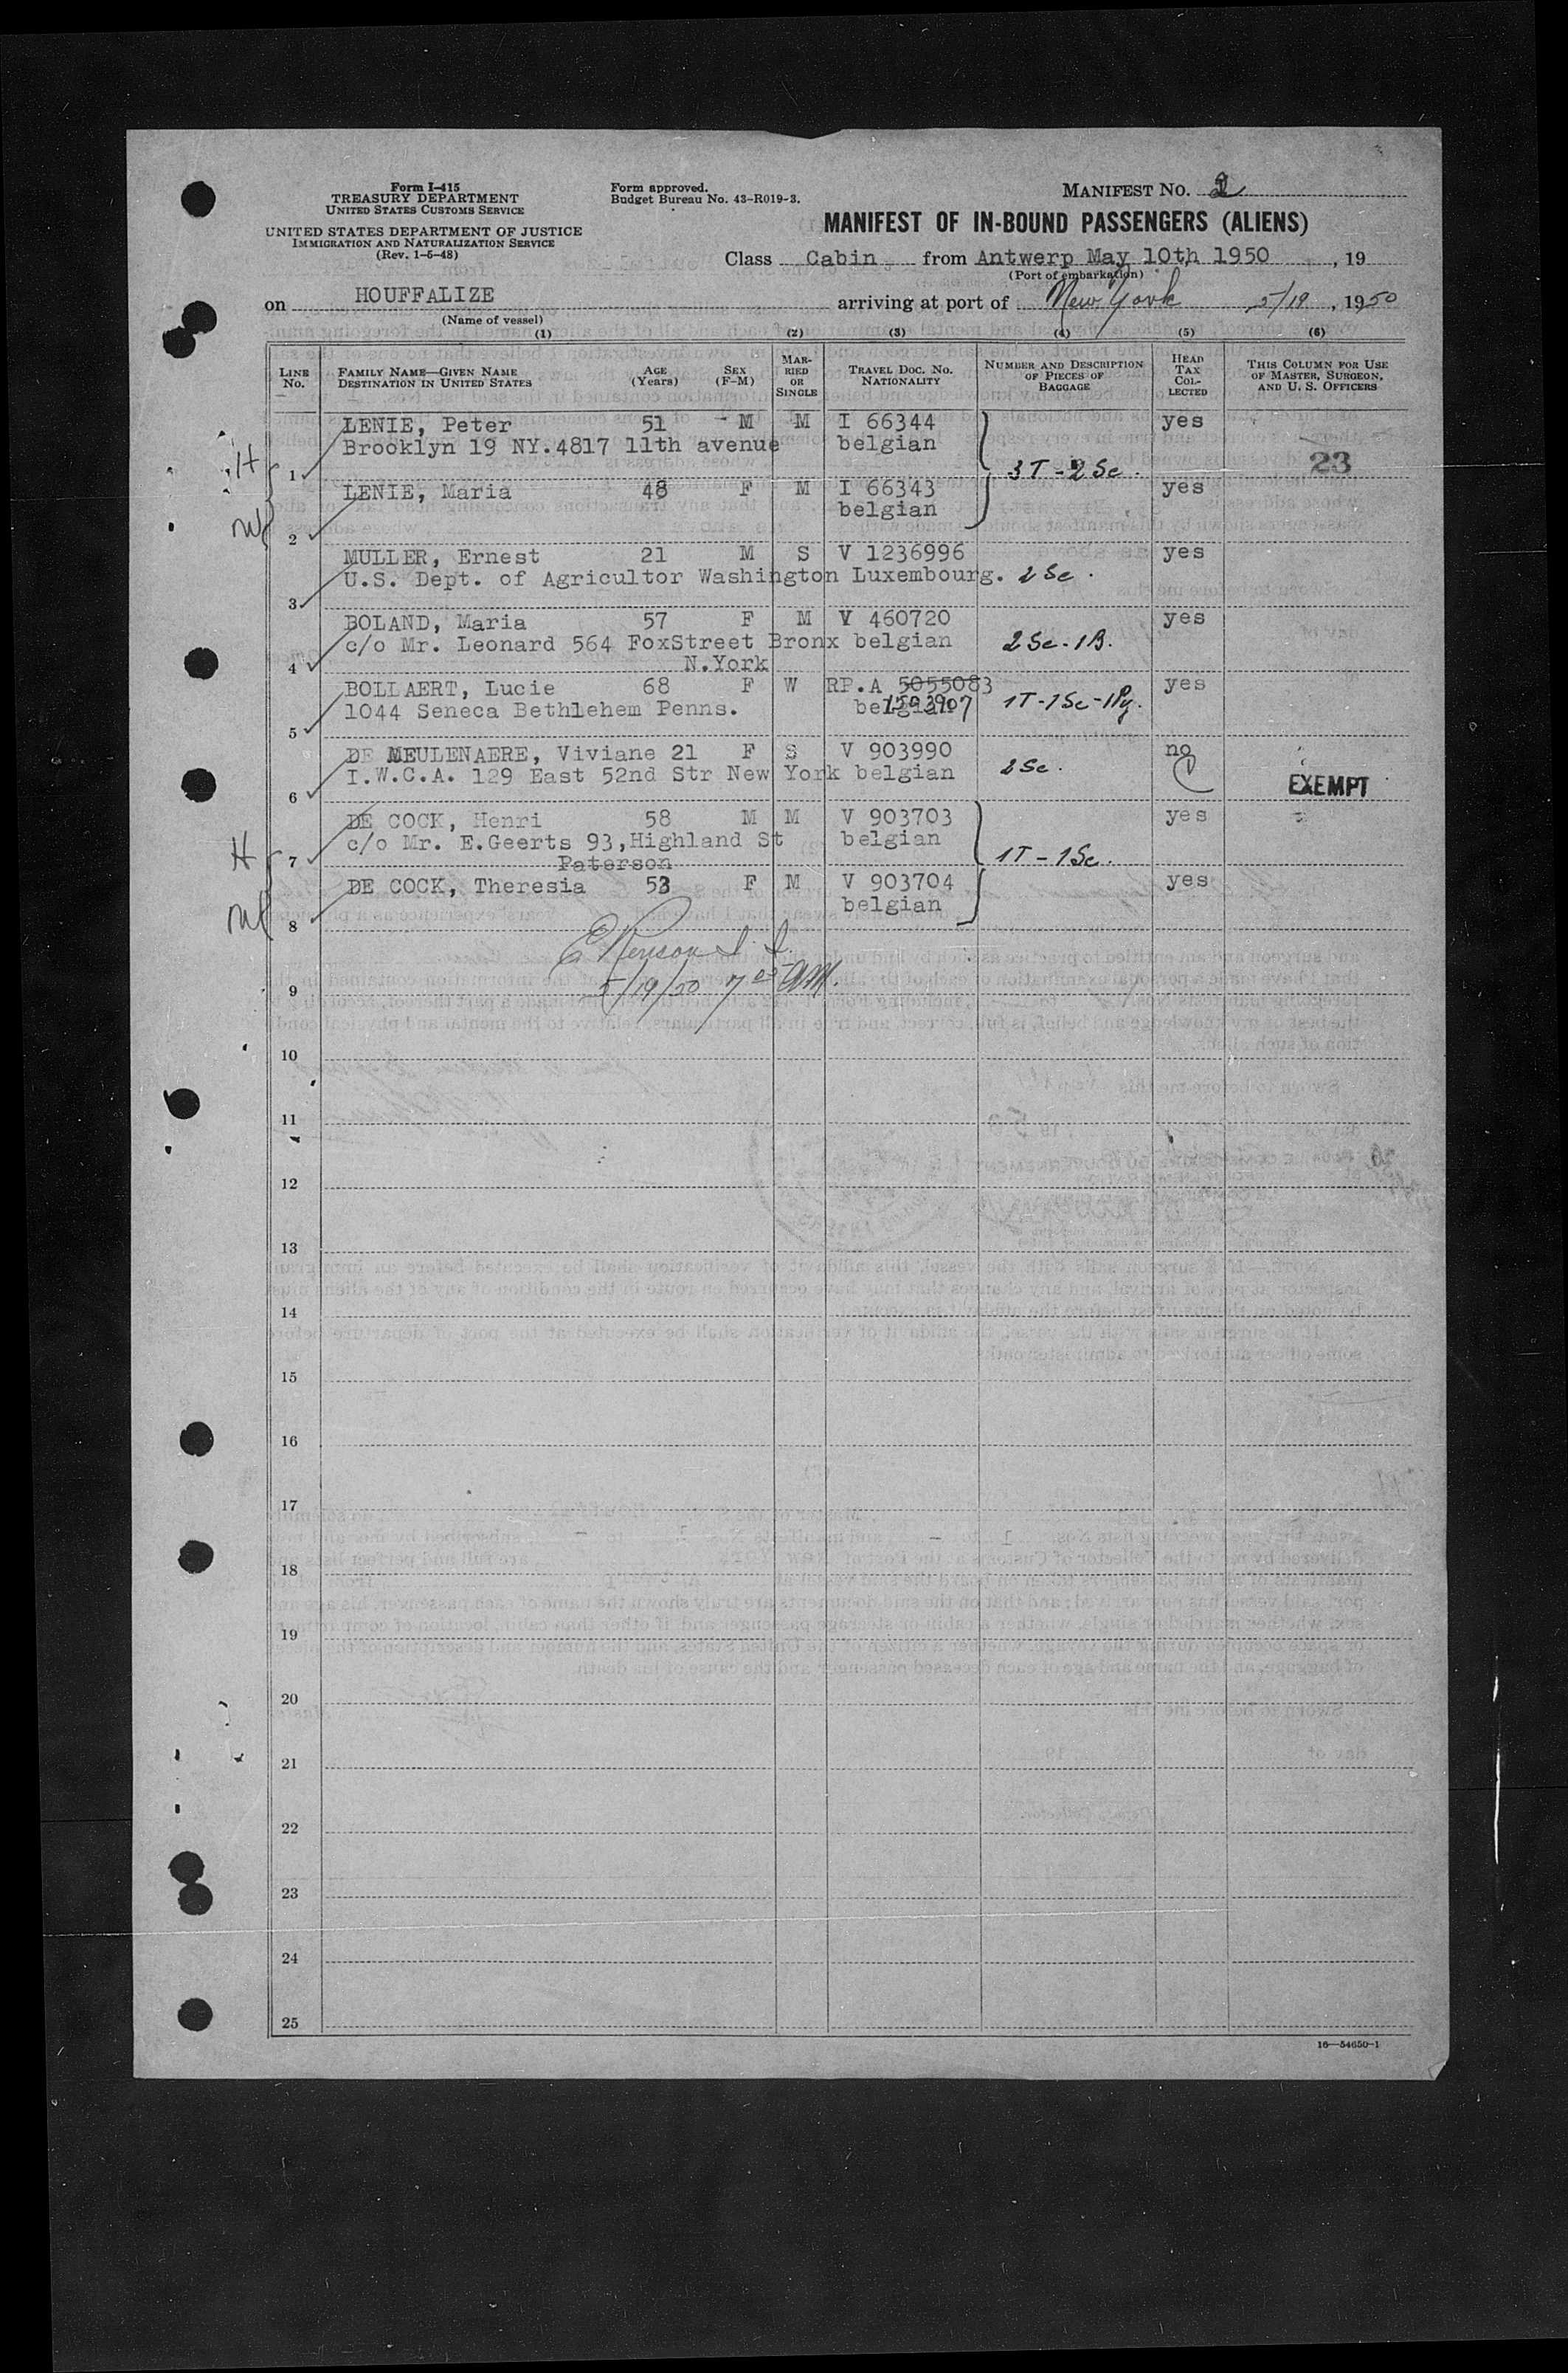 Form I-415
TREASURY DEPARTMENT
UNITED STATES CUSTOMS SERVICE
UNITED STATES DEPARTMENT OF JUSTICE
IMMIGRATION AND NATURALIZATION SERVICE
(Rev. 1-5-48)
Form approved.
Budget Bureau No. 43-R019-3.
MANIFEST NO. 2
MANIFEST OF IN-BOUND PASSENGERS (ALIENS)
Class Cabin from Antwerp May 10th 1950, 19
(Port of embarkation)
on HOUFFALIZE arriving at port of New York 5/19, 1950
(Name of vessel)
(1) (2) (3) (4) (5) (6)
LINE No. FAMILY NAME—GIVEN NAME DESTINATION IN UNITED STATES AGE (Years) SEX (F-M) MARRIED OR SINGLE TRAVEL DOC. NO. NATIONALITY NUMBER AND DESCRIPTION OF PIECES OF BAGGAGE HEAD TAX COLLECTED THIS COLUMN FOR USE OF MASTER, SURGEON, AND U. S. OFFICERS
LENIE, Peter 51 - M M I 66344 yes
H 1 Brooklyn 19 NY. 4817 11th avenue belgian 3 T - 2 Sc. 23
LENIE, Maria 48 F M I 66343 yes
2 belgian
MULLER, Ernest 21 M S V 1236996 yes
3 U.S. Dept. of Agricultor Washington Luxembourg. 2 Sc.
BOLAND, Maria 57 F M V 460720 yes
4 c/o Mr. Leonard 564 FoxStreet Bronx belgian 2 Sc - 1 B.
N.York
BOLLAERT, Lucie 68 F W RP.A 5055083 yes
5 1044 Seneca Bethlehem Penns. belgian 1T - 1 Sc - 1 Pg.
DE MEULENAERE, Viviane 21 F S V 903990 no
6 I.W.C.A. 129 East 52nd Str New York belgian 2 Sc. EXEMPT
DE COCK, Henri 58 M M V 903703 yes
H 7 c/o Mr. E.Geerts 93, Highland St belgian 1T - 1 Sc.
Paterson
DE COCK, Theresia 53 F M V 903704 yes
8 belgian
9 5/19/50 7 AM.
10
11
12
13
14
15
16
17
18
19
20
21
22
23
24
25
16—54650-1